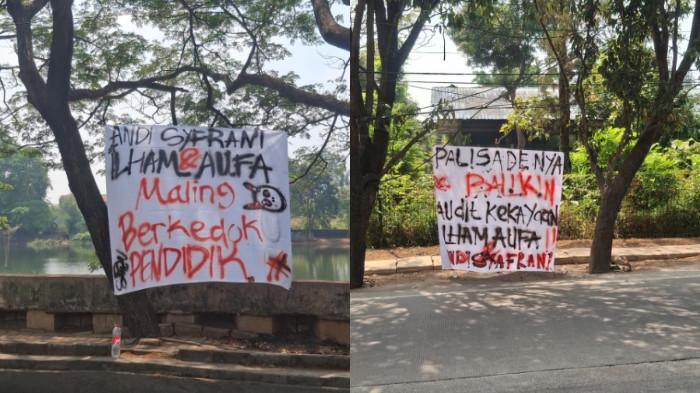 ANDI SYAFRANI
ILHAM & AUFA
Maling
Berkedok
PENDIDIK
PALISADENYA
BALIKIN
AUDIT KEKAYAAN
ILHAM AUFA !!
NDI SYAFRANI